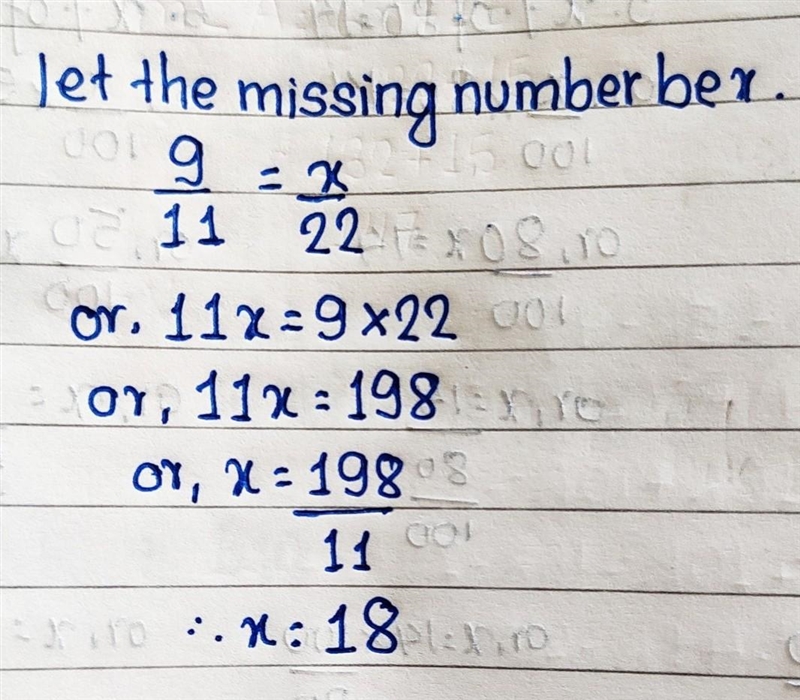 let the missing number be x.
9/11 = x/22
or. 11x = 9 × 22
or, 11x = 198
or, x = 198/11
∴ x = 18